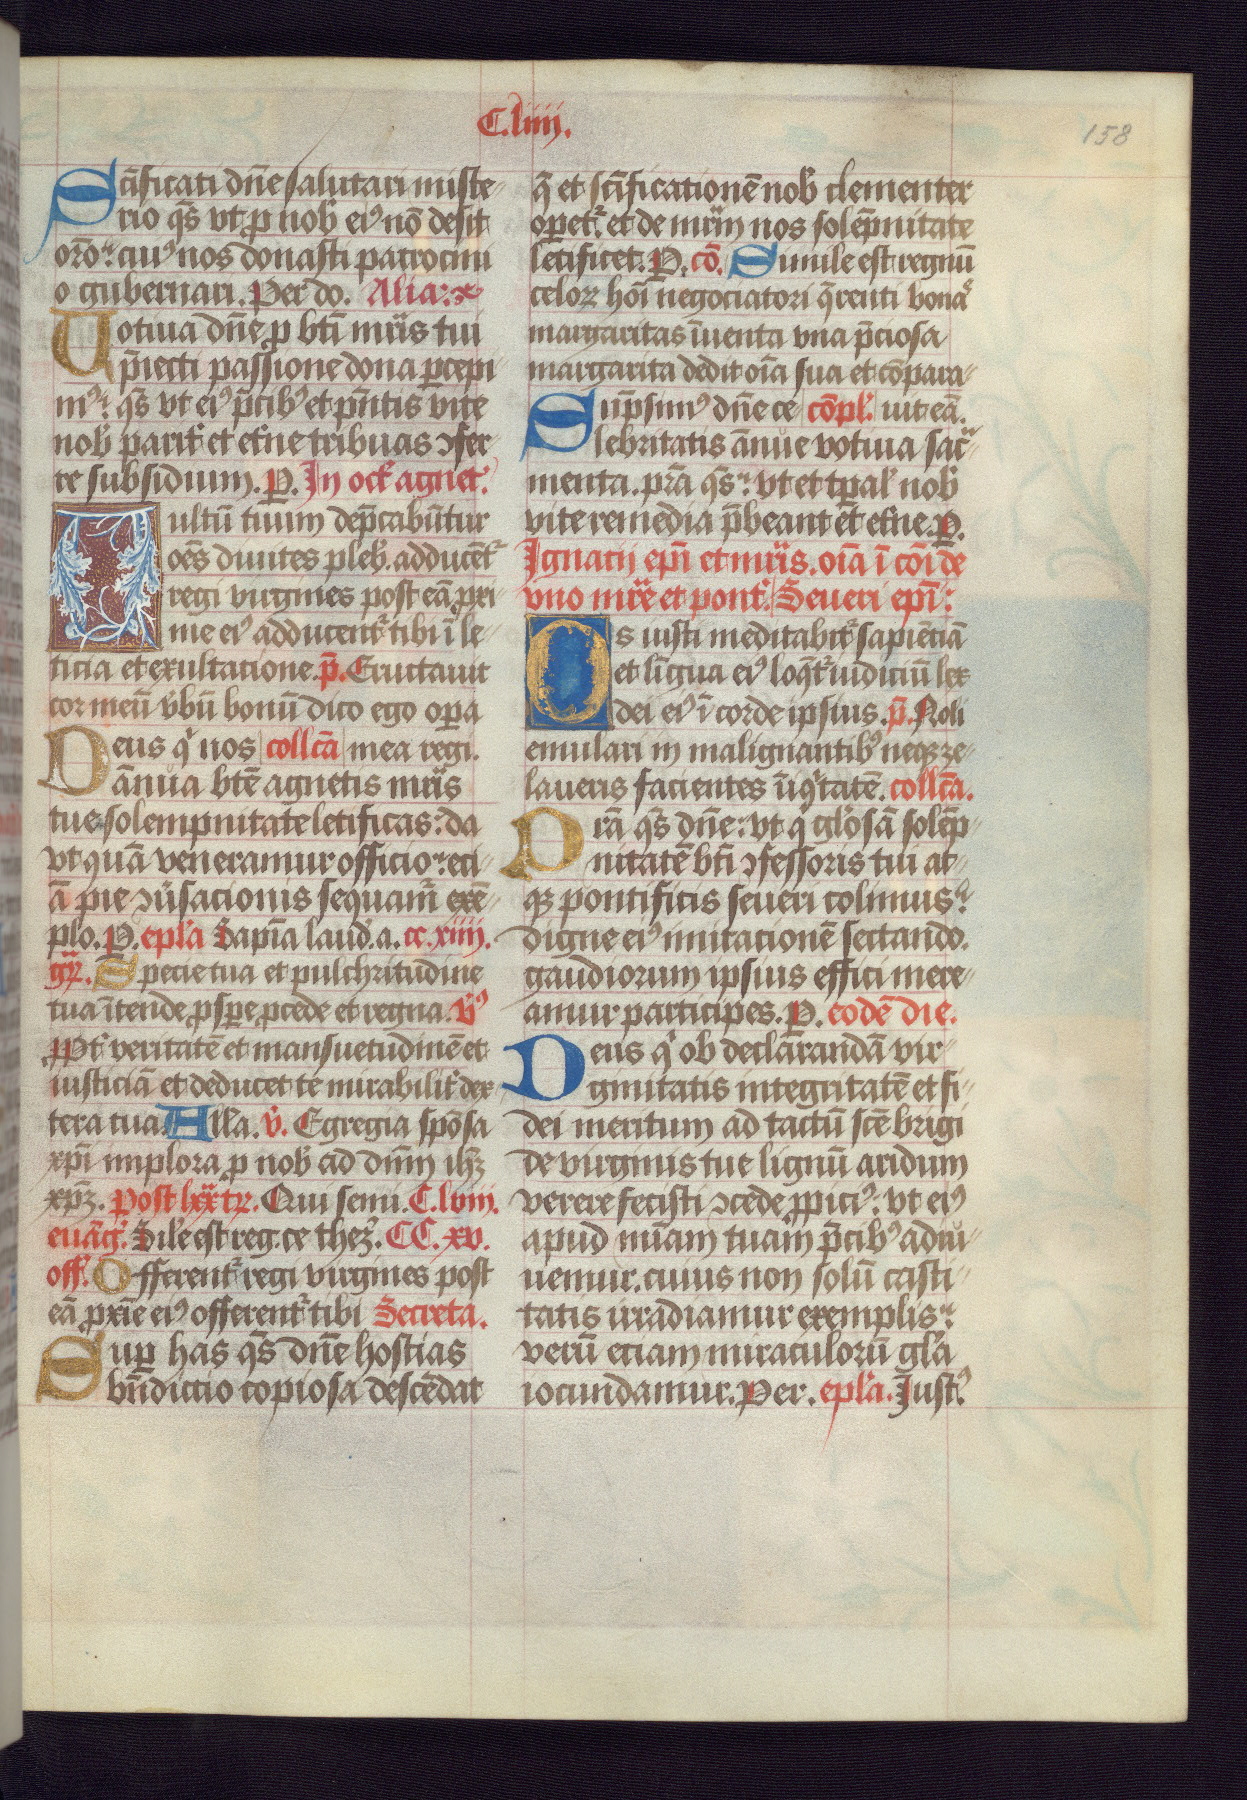 C.liiii.
158
Sc̄ificati dn̄e salutari miste
rio qs̄ vt p nob̄ eiꝰ nō desit
orō: cuiꝰ nos donasti patrocini
o gubernari. Per do. Alia:
Uotiua dn̄e p bt̄i mr̄is tui
p̄iecti passione dona p̄cepi
mꝰ: qs̄ vt eiꝰ p̄cibꝰ et p̄ntis vite
nob̄ parit̄ et et̄ne tribuas ɔfer
re subsidium. P. In oct̄ agnet̄.
Vultū tuum dep̄cabūtur
oēs diuites pleb̄. adducēt̄
regi virgines post eā pxi
me eiꝰ adducent̄ tibi ī le
ticia et exultatione. p̄. Eructauit
cor meū v̄bū bonū dico ego opa
Deus qͥ nos collc̄a mea regi.
ānua btē agnetis mr̄is
tue solempnitate letificas: da
vt quā veneramur officio: eci
ā pie ɔūsacionis sequam̄ exē
plo. P. epl̄a Sapīa laud̄. a. cc.xiiii.
gr̄. Specie tua et pulchritudine
tua ītende psp̄e pcede et regna. v̄ꝰ
Ppt̄ veritatē et mansuetudinē et
iusticiā et deducet te mirabilit̄ dex
tera tua. All̄a. v̄. Egregia spōsa
xp̄i implora p nob̄ ad dn̄m ih̄ꝫ
xp̄ꝫ. Post lxx̄ tr̄. Qui semi. C.lviii.
euāḡ. Sile est reg. ce theꝫ. CC.xv.
off. Offerent̄ regi virgines post
eā pxīe eiꝰ offerent̄ tibi Secreta.
Sup has qs̄ dn̄e hostias
bn̄dictio copiosa descēdat
q̄ et sc̄ificationē nob̄ clementer
opet̄: et de mr̄im nos solēpnitate
letificet. P. cō. Simile est regnū
celoꝝ hōi negociatori q̄renti bonaˢ
margaritas īuenta vna p̄ciosa
margarita dedit oīa sua et cōpara
Sūpsimꝰ dn̄e ce cōpl̄. uit eā.
lebritatis ānue votiua sac̄
menta. pr̄a qs̄: vt et tp̄al̄ nob̄
vite remedia p̄beant et et̄ne. P.
Ignacii epī et mr̄is. oīa ī cōi de
vno mr̄e et pont̄. Seueri epī:
Os iusti meditabit̄ sapiētiā
et līgua eiꝰ loq̄t̄ iudiciū lex
dei eiꝰ ī corde ipsius. p̄. Noli
emulari in malignantibꝰ neqꝫ ze
laueris facientes īiqͥtatē. collc̄a.
Pr̄a qs̄ dn̄e: vt q glōsā solēp
nitatē bt̄i ɔfessoris tui at
qꝫ pontificis seueri colimus:
digne eiꝰ imitacionē sectando.
gaudiorum ipsius effici mere
amur participes. P. eodē die.
Deus qͥ ob declārandā vir
ginitatis integritatē et fi
dei meritum ad tactū sc̄e brigi
de virginis tue lignū aridum
verere fecisti ɔcede ppiciꝰ: vt eiꝰ
apud m̄iam tuam p̄cibꝰ adiu
uemur. cuius non solū casti
tatis irradiamur exemplis:
verū etiam miraculorū gl̄a
iocundamur. Per. epl̄a. Justꝰ